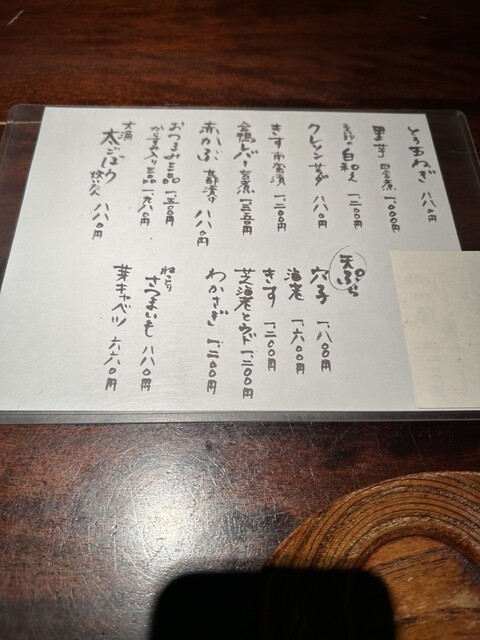 とう玉ねぎ 八八〇円
里芋 田舎煮 一、〇〇〇円
白和え 一、二〇〇円
クレソンサラダ 八八〇円
きす南蛮漬 一、二〇〇円
合鴨レバー 旨煮 一、三五〇円
赤かぶ 甘酢漬け 八八〇円
おつまみ三品 一、五〇〇円
からすみ入り三品 一、九八〇円
大浦
太ごぼう 炊いたん 八八〇円
天ぷら
穴子 一、八〇〇円
海老 一、六〇〇円
きす 一、二〇〇円
芝海老とウド 一、二〇〇円
わかさぎ 一、二〇〇円
ねっとり
さつまいも 八八〇円
芽キャベツ 六六〇円